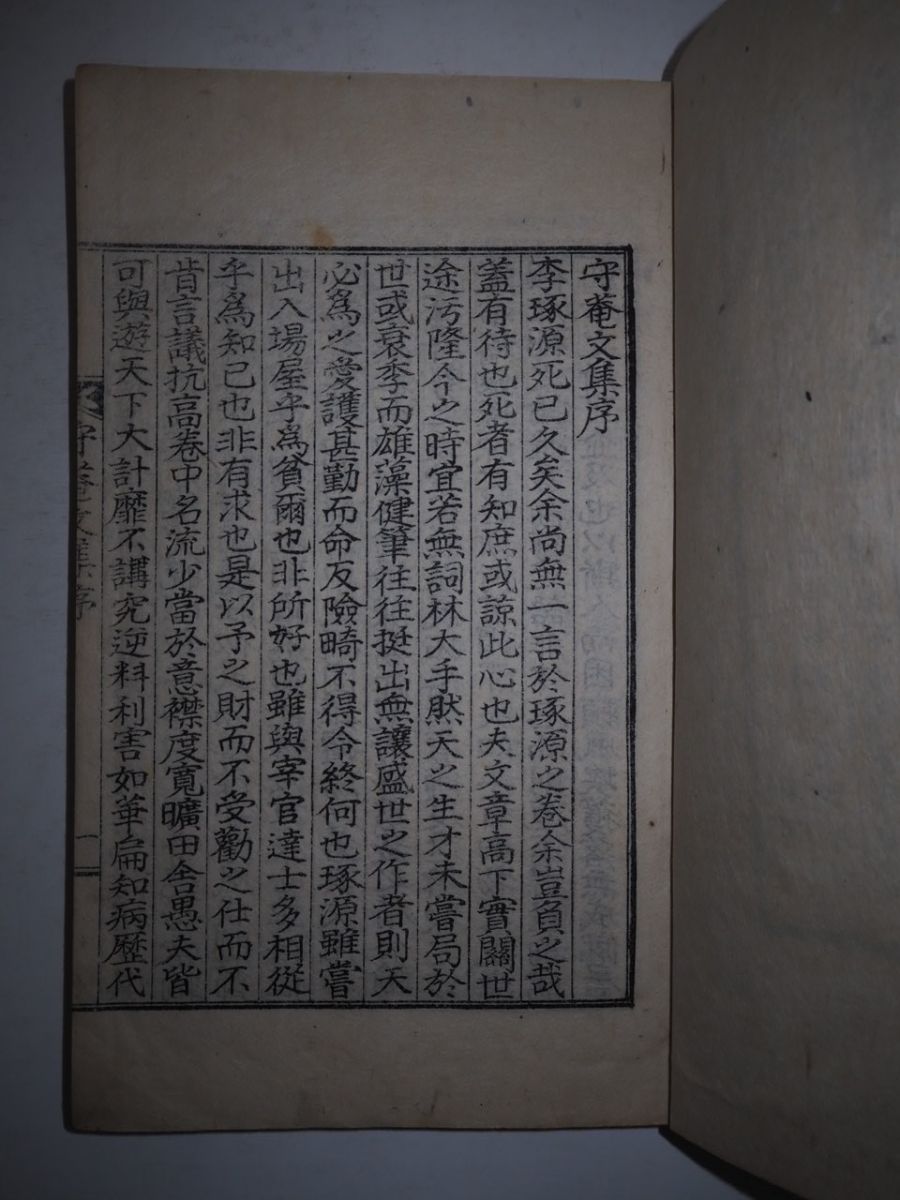 守菴文集序
李琢源死已久矣余尚無一言於琢源之卷余豈負之哉
蓋有待也死者有知庶或諒此心也夫文章高下實關世
途汚隆今之時宜若無詞林大手然天之生才未嘗局於
世或衰季而雄藻健筆往往挺出無讓盛世之作者則天
必爲之愛護甚勤而命反險畸不得令終何也琢源雖嘗
出入場屋乎爲貧爾也非所好也雖與宰官達士多相從
乎爲知己也非有求也是以予之財而不受勸之仕而不
肯言議抗高卷中名流少當於意襟度寬曠田舍愚夫皆
可與遊天下大計靡不講究逆料利害如華扁知病歷代
守菴文集序
一